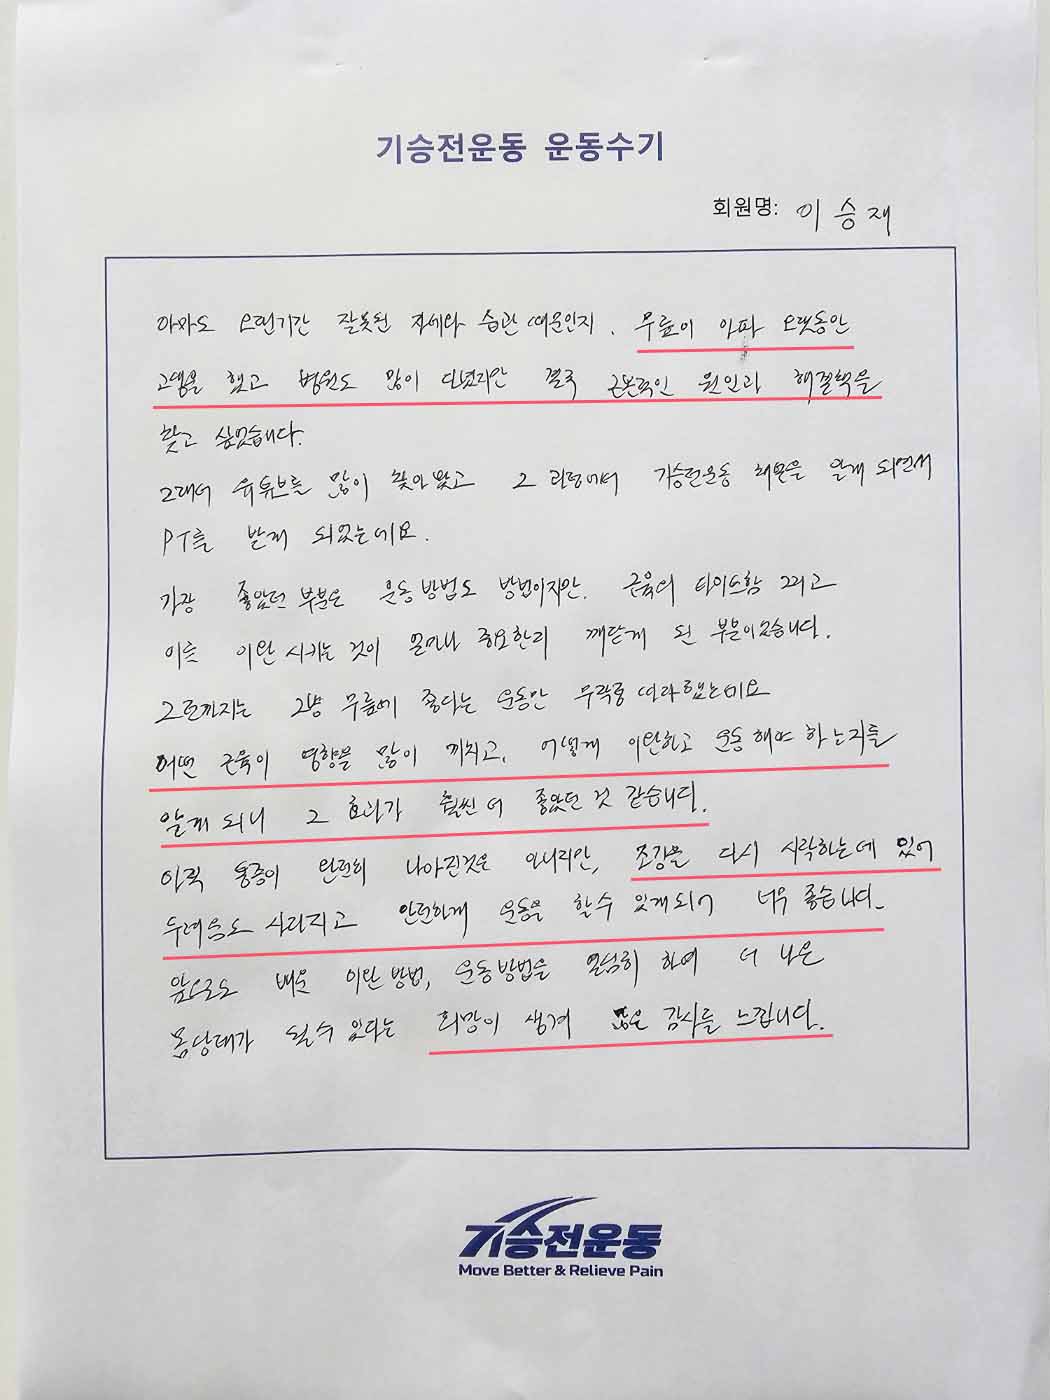 기승전운동 운동수기
회원명: 이승재
아마도 오랜기간 잘못된 자세와 습관 때문인지. 무릎이 아파 오랫동안
고생을 했고 병원도 많이 다녔지만 결국 근본적인 원인과 해결책을
찾고 싶었습니다.
그래서 유튜브를 많이 찾아봤고 그 과정에서 기승전운동 채널을 알게 되면서
PT를 받게 되었는데요.
가장 좋았던 부분은 운동방법도 방법이지만. 근육의 타이트함 그리고
이를 이완 시키는 것이 얼마나 중요한지 깨닫게 된 부분이었습니다.
그전까지는 그냥 무릎에 좋다는 운동만 무작정 따라했는데요
어떤 근육이 영향을 많이 끼치고, 어떻게 이완하고 운동해야 하는지를
알게 되니 그 효과가 훨씬 더 좋았던 것 같습니다.
아직 통증이 완전히 나아진것은 아니지만, 조깅을 다시 시작하는데 있어
두려움도 사라지고 안전하게 운동을 할수 있게되어 너무 좋습니다.
앞으로도 배운 이완 방법, 운동방법을 열심히 하여 더 나은
몸상태가 될수 있다는 희망이 생겨 많은 감사를 느낍니다.
기승전운동
Move Better & Relieve Pain